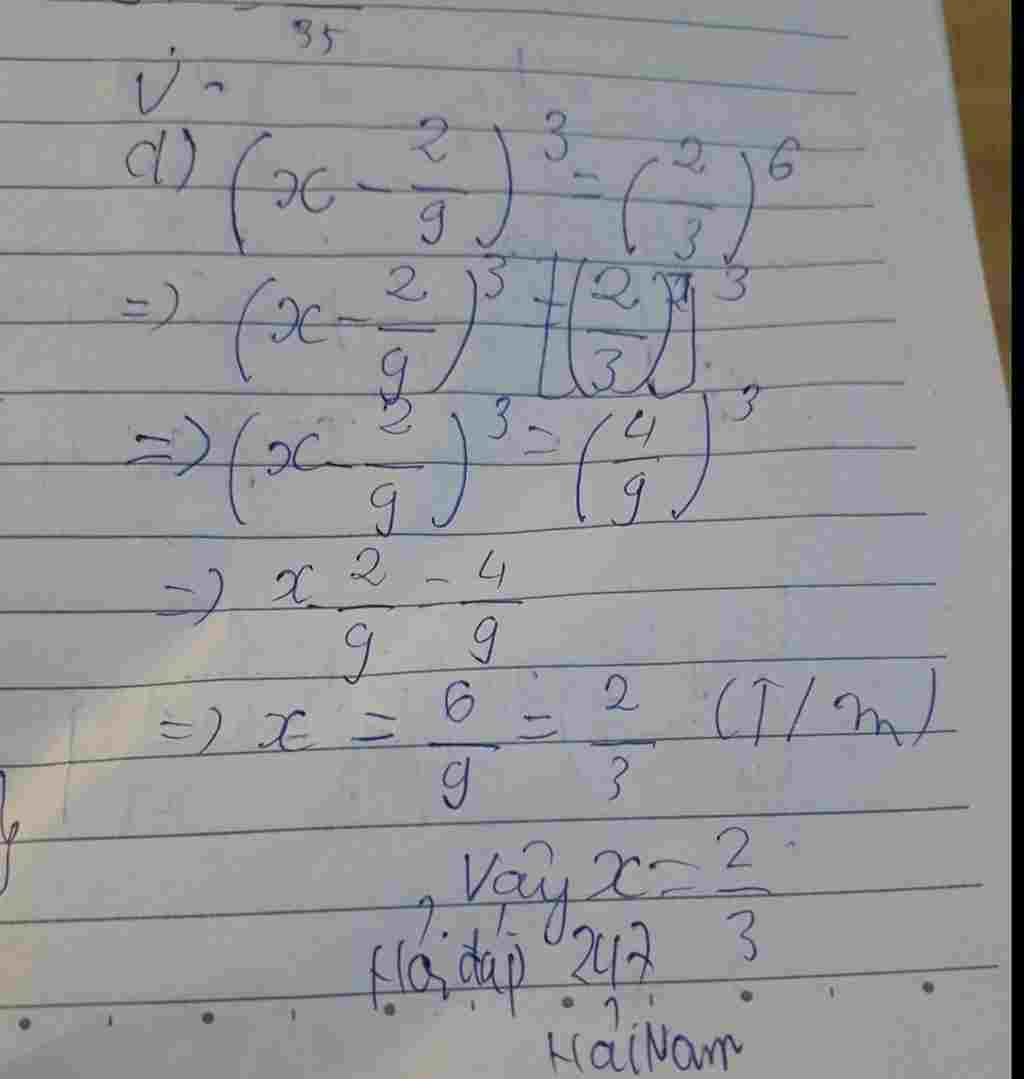 35
V
d) (x - 2/9)^3 = (2/3)^6
=> (x - 2/9)^3 = [(2/3)^2]^3
=> (x - 2/9)^3 = (4/9)^3
=> x - 2/9 = 4/9
=> x = 6/9 = 2/3 (T/m)
Vậy x = 2/3
Hỏi đáp 247
Hải Nam